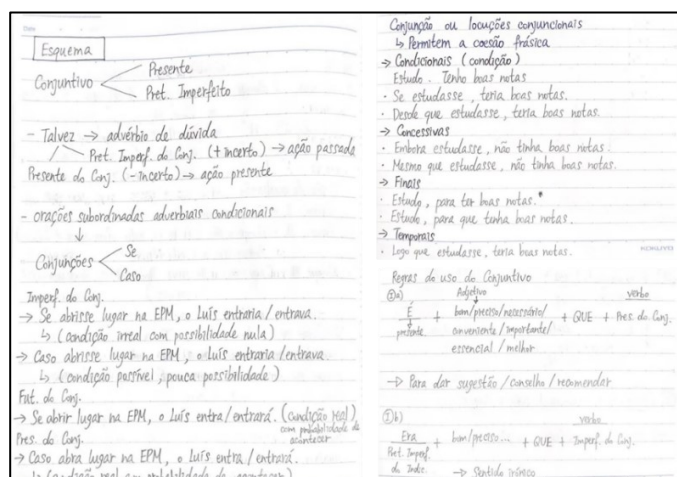 Esquema
Conjuntivo
Presente
Pret. Imperfeito
- Talvez → advérbio de dúvida
Pret. Imperf. do Conj. (+ incerto) → ação passada
Presente do Conj. (- incerto) → ação presente
- orações subordinadas adverbiais condicionais
↓
Conjunções
Se
Caso
Imperf. do Conj.
→ Se abrisse lugar na EPM, o Luís entraria / entrava.
↳ (condição irreal com possibilidade nula)
→ Caso abrisse lugar na EPM, o Luís entraria / entrava.
↳ (condição possível, pouca possibilidade)
Fut. do Conj.
→ Se abrir lugar na EPM, o Luís entra / entrará. (condição real)
com probabilidade de
acontecer
Pres. do Conj.
→ Caso abra lugar na EPM, o Luís entra / entrará.
↳ (condição real com probabilidade de acontecer)
Conjunção ou locuções conjuncionais
↳ Permitem a coesão frásica
→ Condicionais (condição)
Estudo. Tenho boas notas
· Se estudasse, teria boas notas.
· Desde que estudasse, teria boas notas.
→ Concessivas
· Embora estudasse, não tinha boas notas.
· Mesmo que estudasse, não tinha boas notas.
→ Finais
· Estudo, para ter boas notas.*
· Estudo, para que tenha boas notas.
→ Temporais
· Logo que estudasse, teria boas notas.
KOKUYO
Regras do uso do Conjuntivo
①a) Adjetivo verbo
É + bom/preciso/necessário/ + QUE + Pres. do Conj.
presente conveniente/importante/
essencial / melhor
→ Para dar sugestão / conselho / recomendar
①b) verbo
Era + bom/preciso... + QUE + Imperf. do Conj.
Pret. Imperf.
do Indic. → Sentido irónico